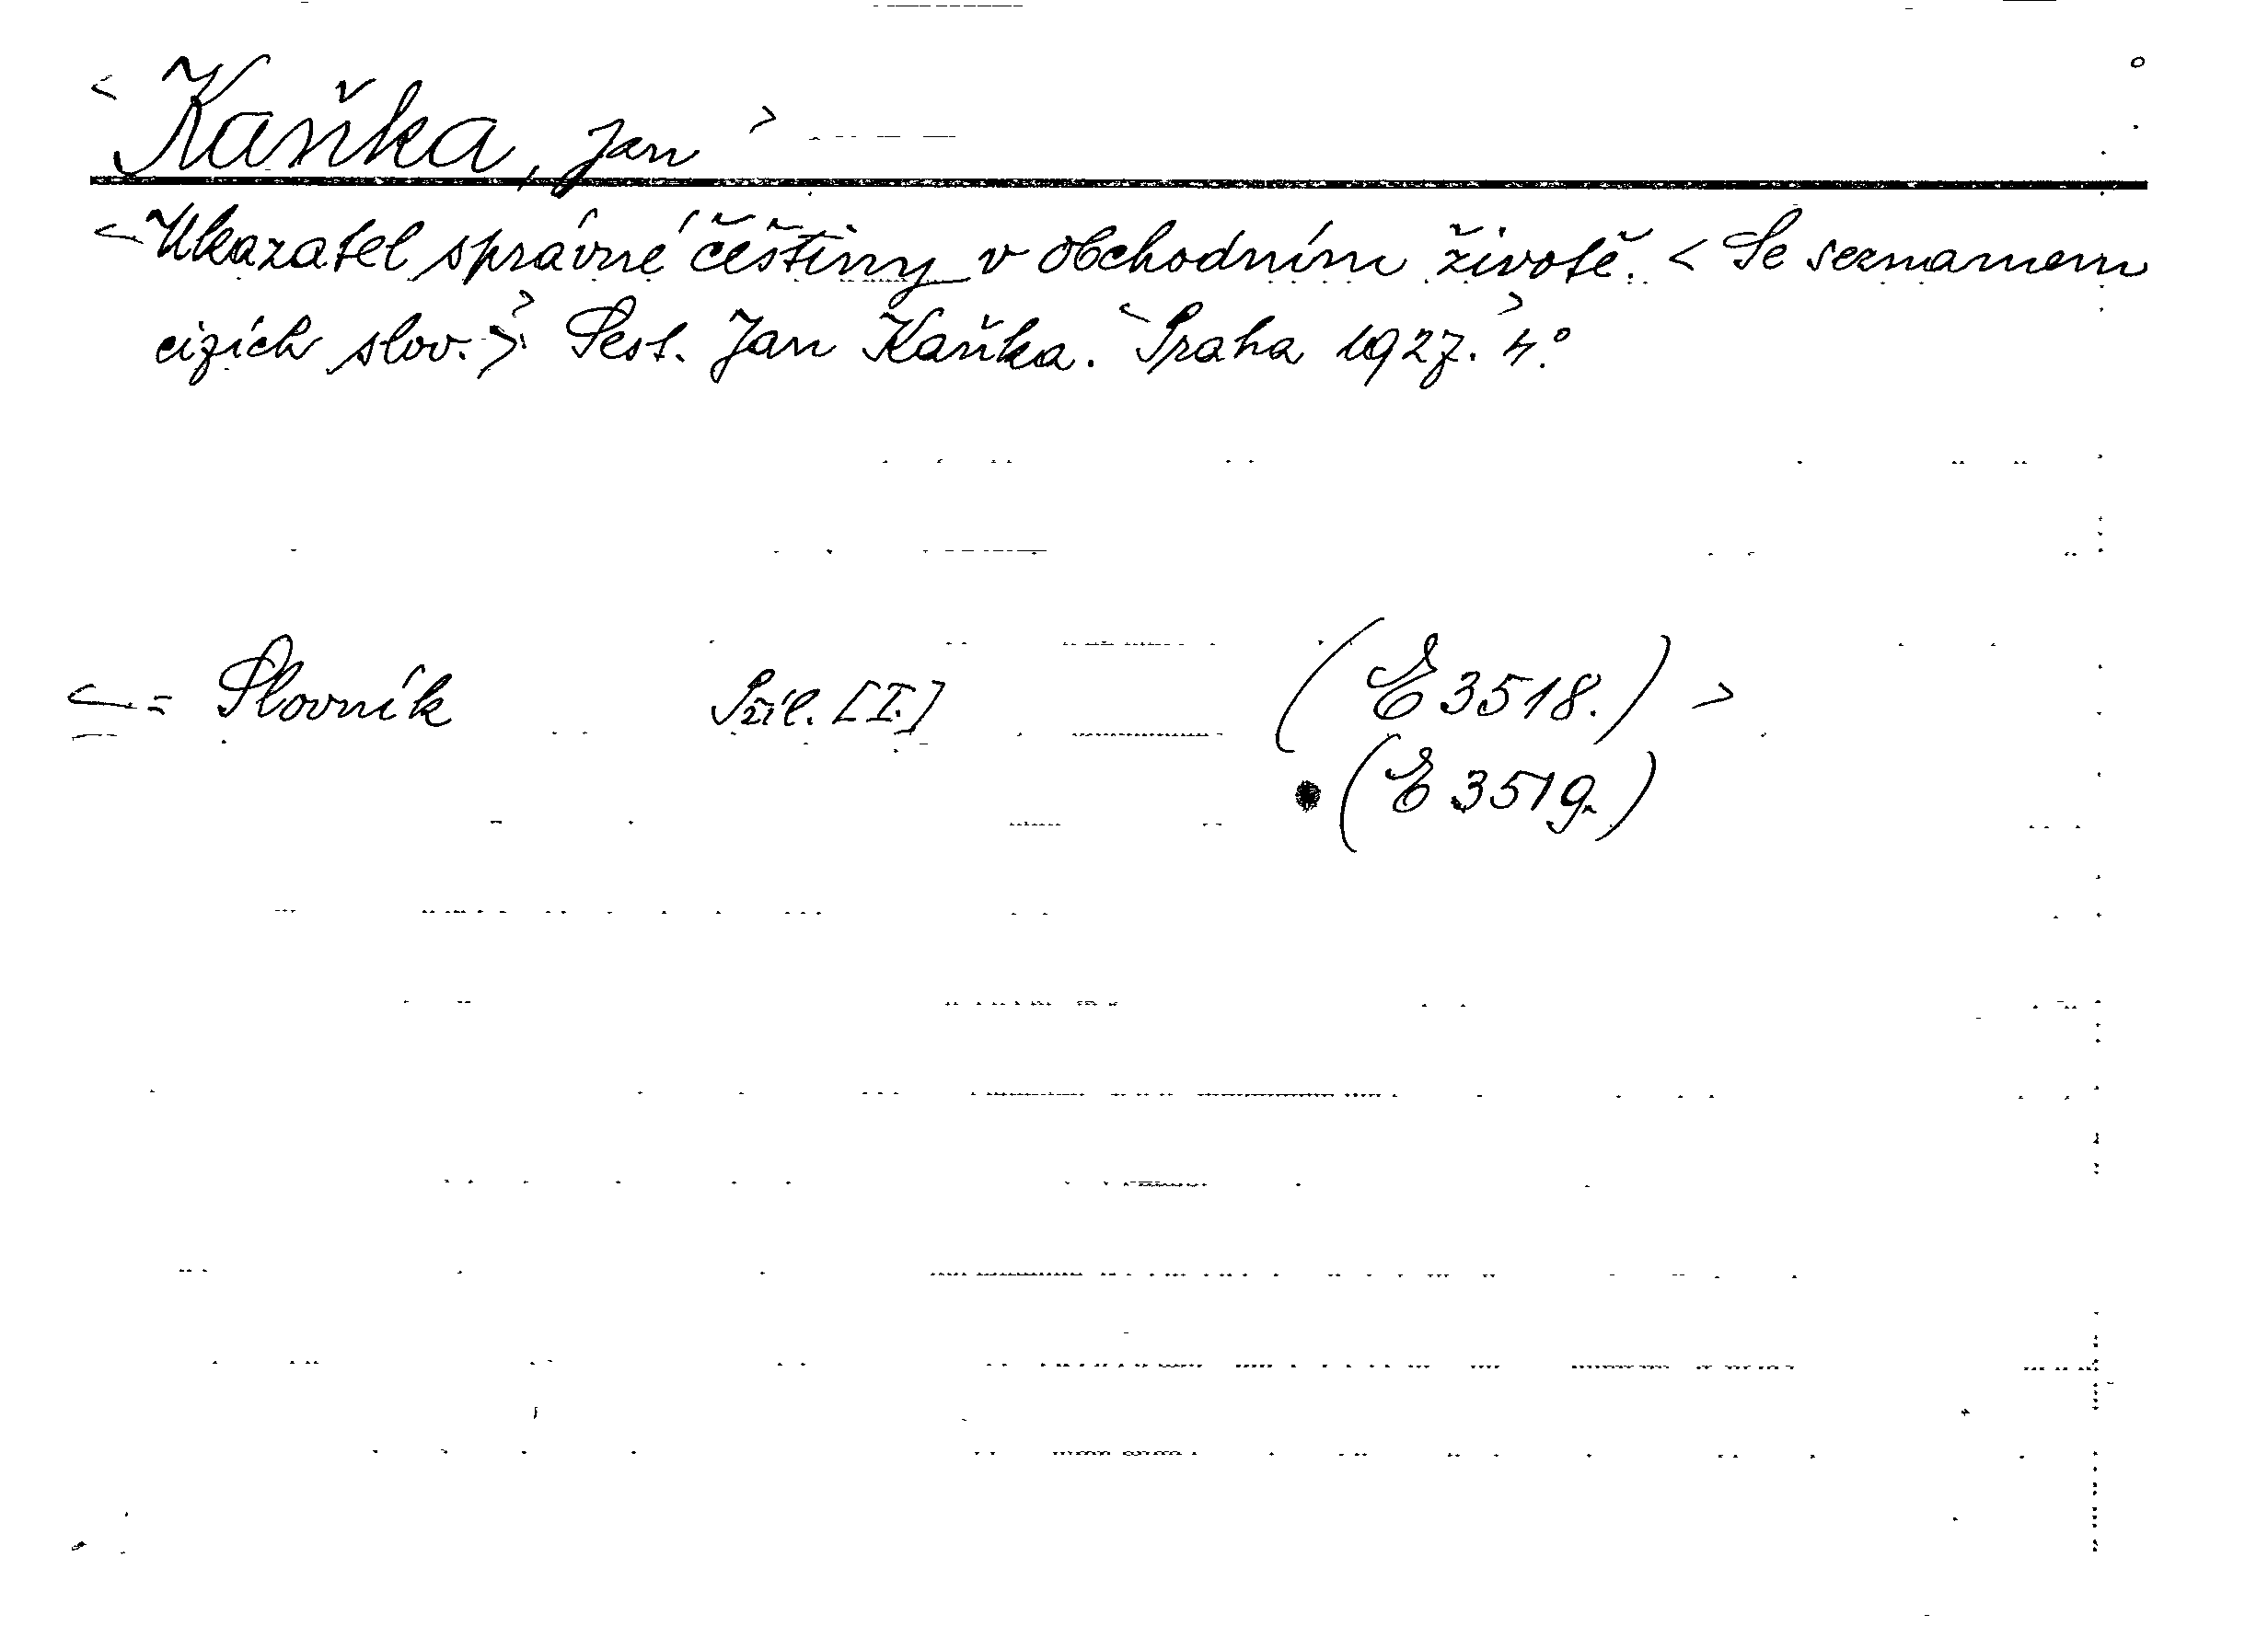 < Kaňka, Jan >
< Ukazatel správné češtiny v obchodním životě. < Se seznamem
cizích slov. > > Sest. Jan Kaňka. < Praha 1927. > 4.°
< = Slovník Příl. [I.] (E 3518.) >
• (E 3519.)